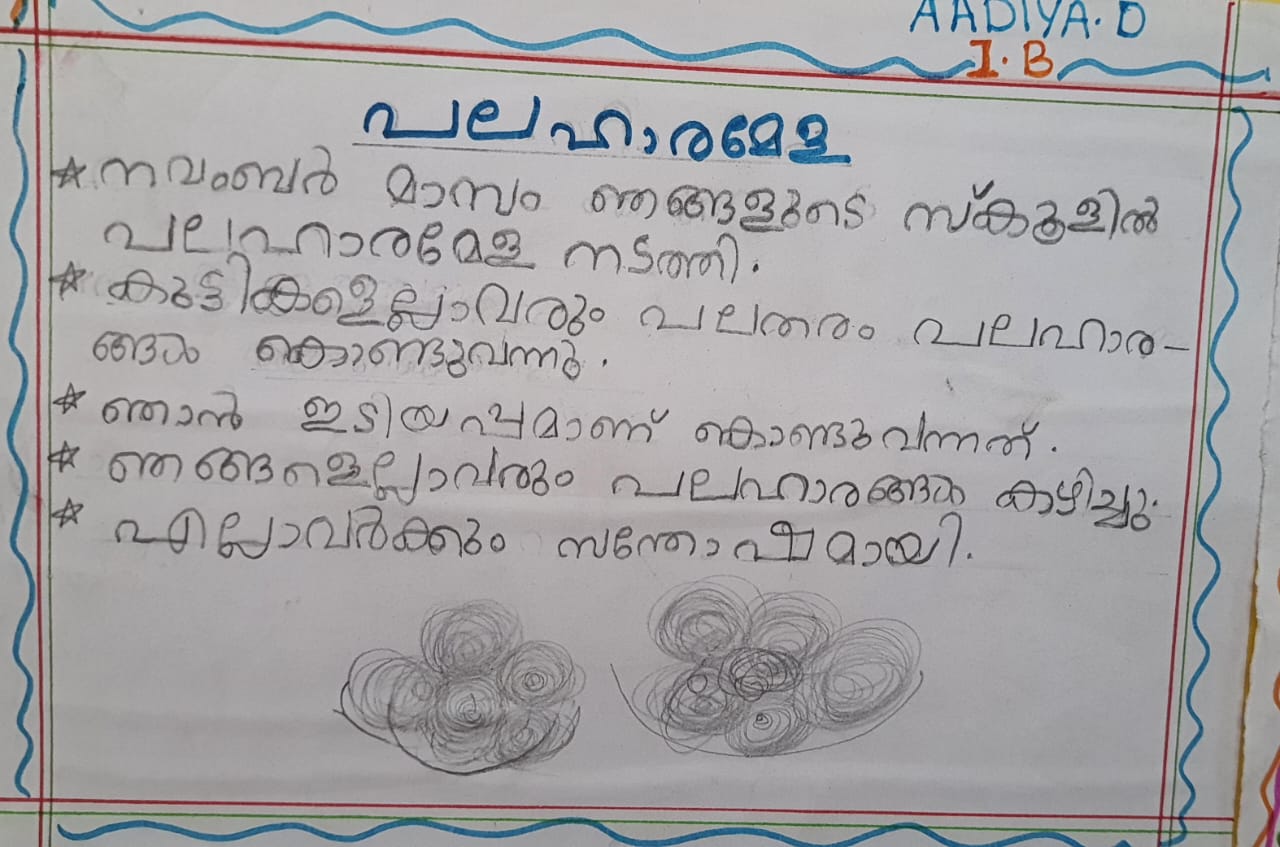 AADIYA.D
I.B
പലഹാരമേള
നവംബർ മാസം ഞങ്ങളുടെ സ്കൂളിൽ
പലഹാരമേള നടത്തി.
കുട്ടികളെല്ലാവരും പലതരം പലഹാര-
ങ്ങൾ കൊണ്ടുവന്നു.
ഞാൻ ഇടിയപ്പമാണ് കൊണ്ടുവന്നത്.
ഞങ്ങളെല്ലാവരും പലഹാരങ്ങൾ കാഴിച്ചു.
എല്ലാവർക്കും സന്തോഷമായി.